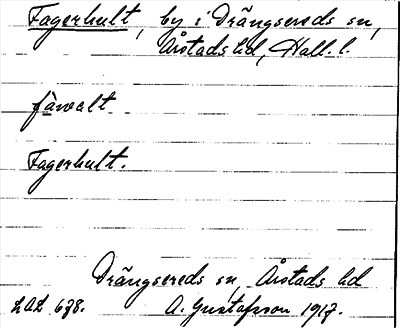 Fagerhult, by i Drängsereds sn,
Årstads hd, Hall. l.
fàwalt
Fagerhult.
Drängsereds sn, Årstads hd
LAL 678. A. Gustafsson 1917.